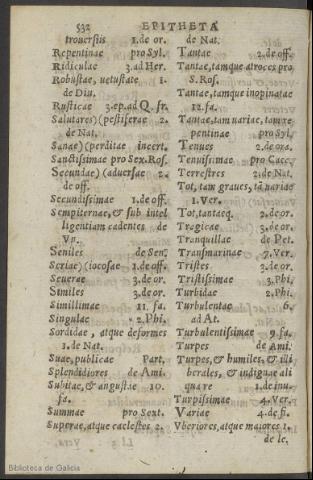 532 EPITHETA
trouersiis 1.de or.
Repentinae pro Syl.
Ridiculae 3.ad Her.
Robustae, uetustate 1.
de Diu.
Rusticae 3.ep.ad Q.fr.
Salutares) (pestiferae 2.
de Nat.
Sanae) (perditae incert.
Sanctissimae pro Sex.Ros.
Secundae) (aduersae 2.
de off.
Secundissimae 1.de off.
Sempiternae, & sub intel
ligentiam cadentes de
Vn.
Seniles de Sen.
Seriae) (iocosae 1.de off.
Seuerae 3.de or.
Similes 3.de or.
Simillimae 11.fa.
Singulae 2.Phi.
Sordidae, atque deformes
1.de Nat.
Suae, publicae Part.
Splendidiores de Ami.
Subitae, & angustae 10.
fa.
Summae pro Sext.
Superae, atque caelestes 2.
de Nat.
Tantae 2.de off.
Tantae, tamque atroces pro
S.Ros.
Tantae, tamque inopinatae
12.fa.
Tantae, tam uariae, tam re
pentinae pro Syl.
Tenues 2.de ora.
Tenuissimae pro Caec.
Terrestres 2.de Nat.
Tot, tam graues, tā uariae
1.Ver.
Tot, tantaeq. 2.de or.
Tragicae 3.de or.
Tranquillae de Pet.
Transmarinae 7.Ver.
Tristes 3.de or.
Tristissimae 3.Phi.
Turbidae 2.Phi.
Turbulentae 6.
ad At.
Turbulentissimae 9.fa.
Turpes de Ami.
Turpes, & humiles, & illi
berales, & indignae ali
quare 1.de inu.
Turpissimae 4.Ver.
Variae 4.de fi.
Vberiores, atque maiores 1.
de le.
Biblioteca de Galicia